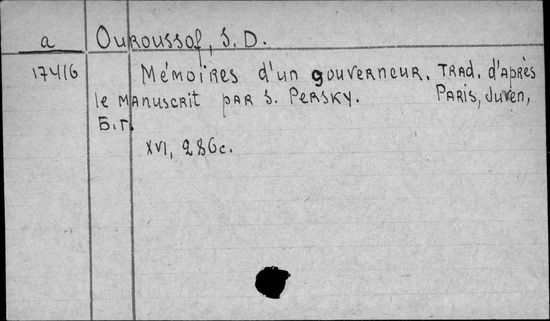 a Ouroussof, S. D.
17416 Mémoires d'un gouverneur. Trad. d'après
le manuscrit par S. Persky. Paris, Juven,
Б.г.
XVI, 286c.